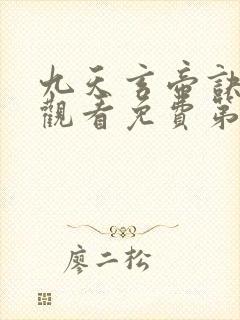 九天玄帝訣
觀看免費第
廖二松